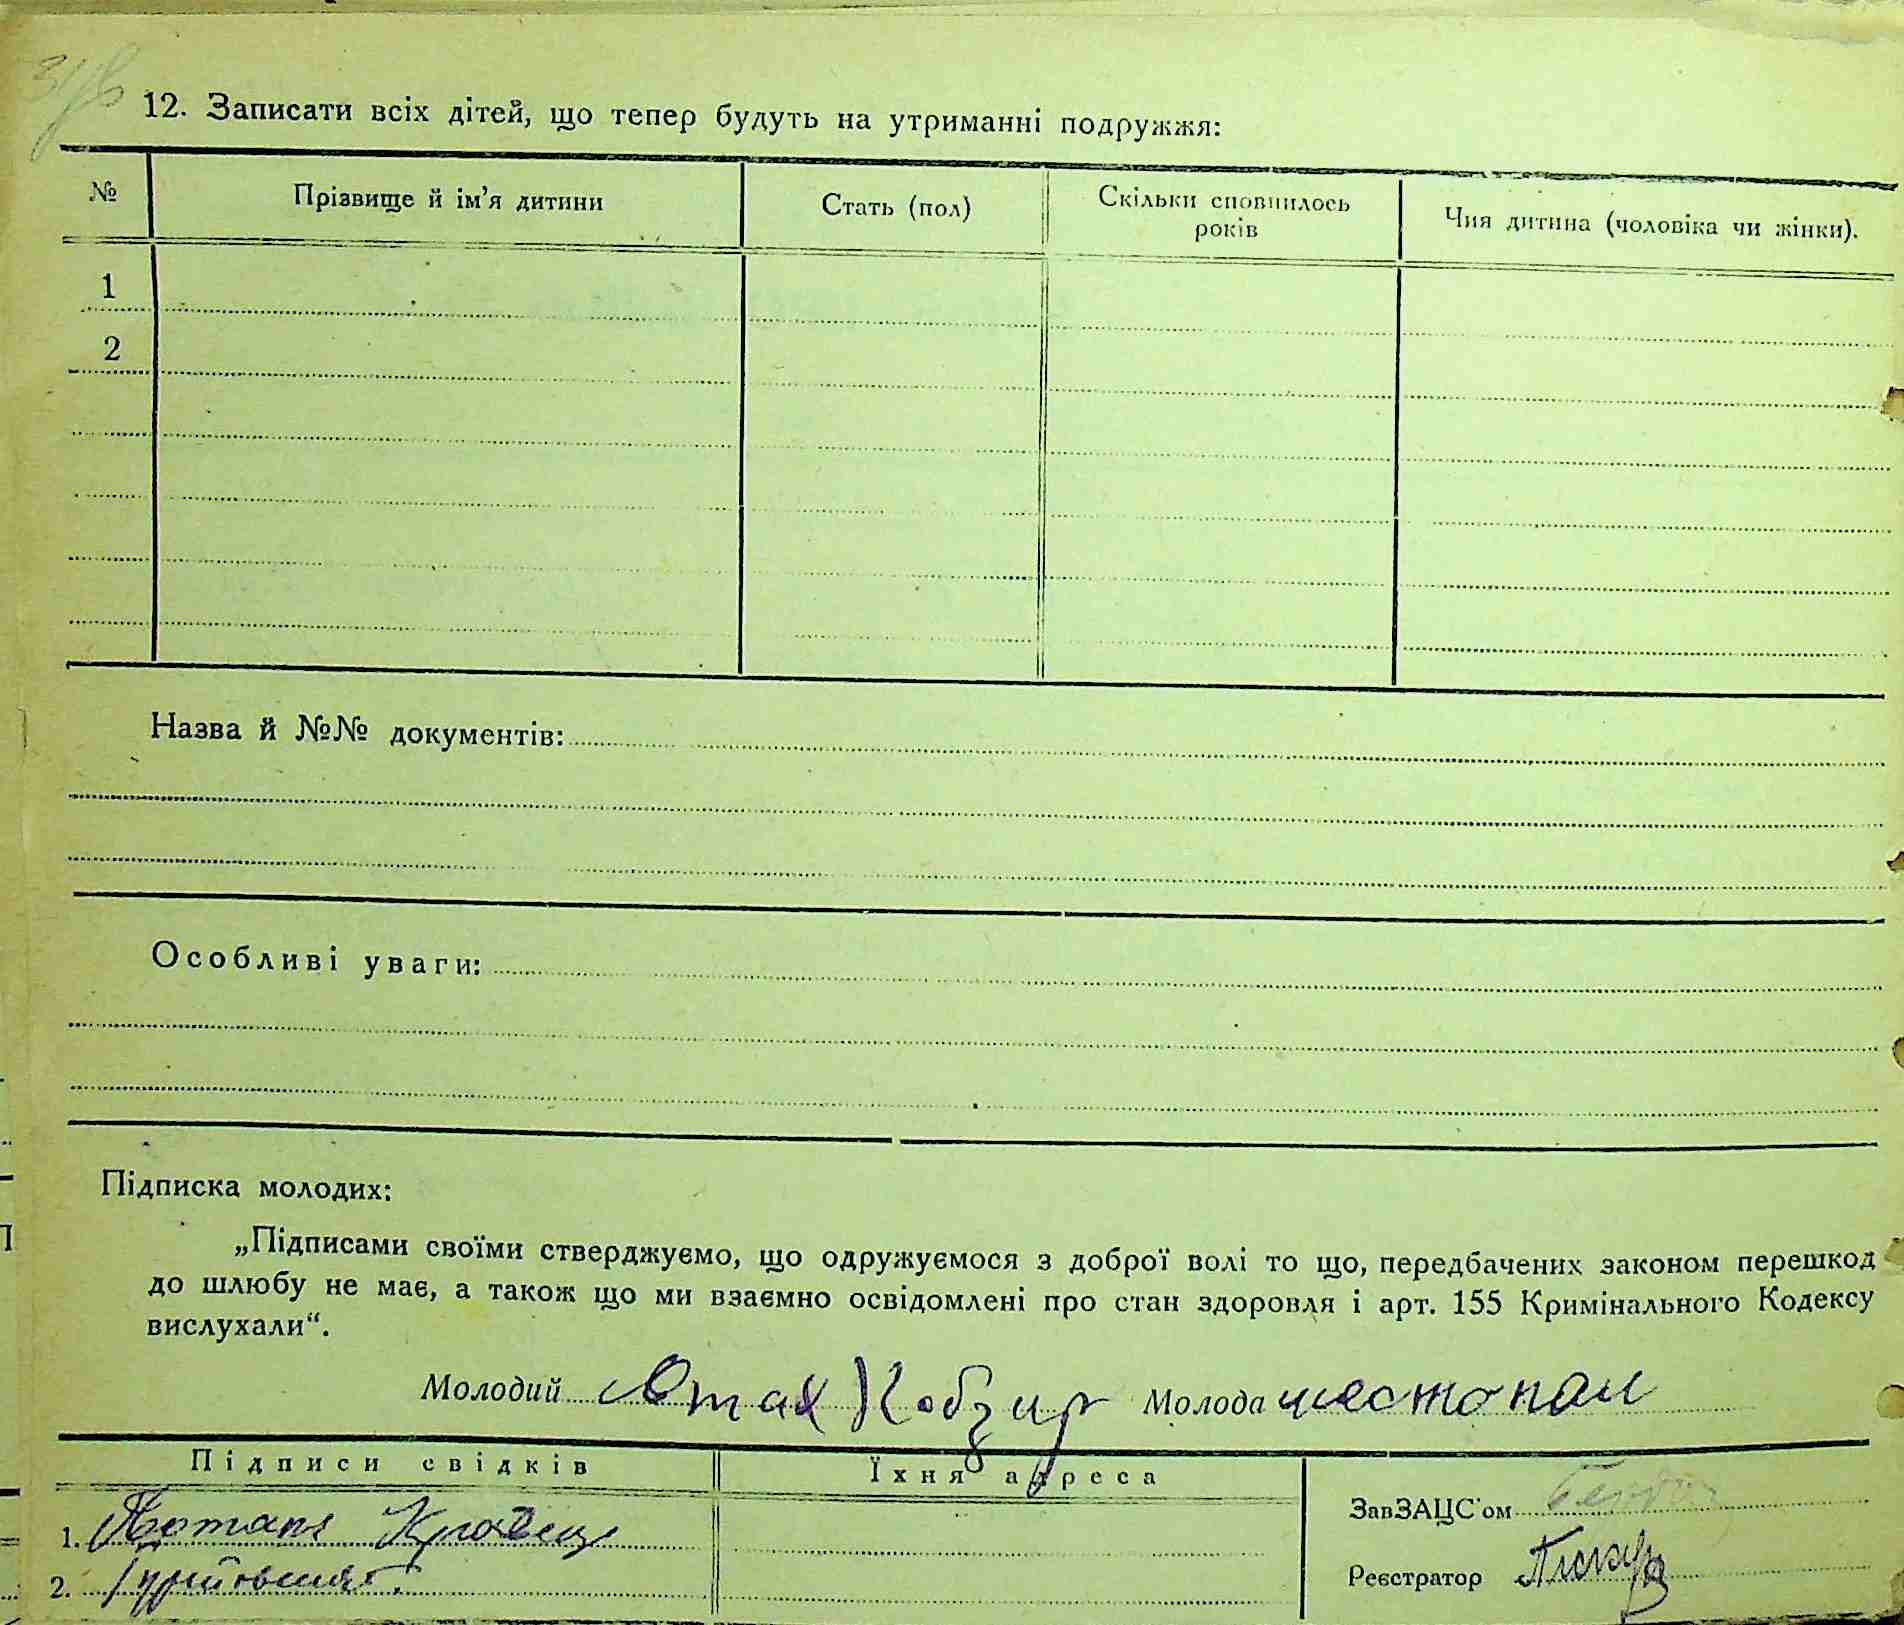 12. Записати всіх дітей, що тепер будуть на утриманні подружжя:
№ Прізвище й ім’я дитини Стать (пол) Скільки сповнилось років Чия дитина (чоловіка чи жінки).
1
2
Назва й №№ документів:
Особливі уваги:
Підписка молодих:
„Підписами своїми стверджуємо, що одружуємося з доброї волі то що, передбачених законом перешкод
до шлюбу не має, а також що ми взаємно освідомлені про стан здоровля і арт. 155 Кримінального Кодексу
вислухали“.
Молодий Кобзир Молода шестопал
Підписи свідків Їхня адреса
ЗавЗАЦС’ом
1. Потап Кравец
Реєстратор
2.